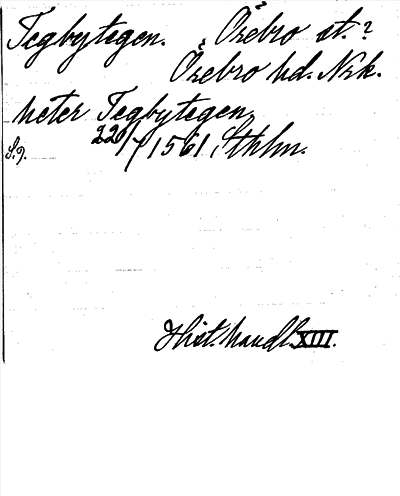 Tegbytegen. ? Örebro st.?
Örebro hd. Nrk.
heter Tegbytegen
22/7 1561 Sthlm.
S. 9.
Hist. handl. XIII.